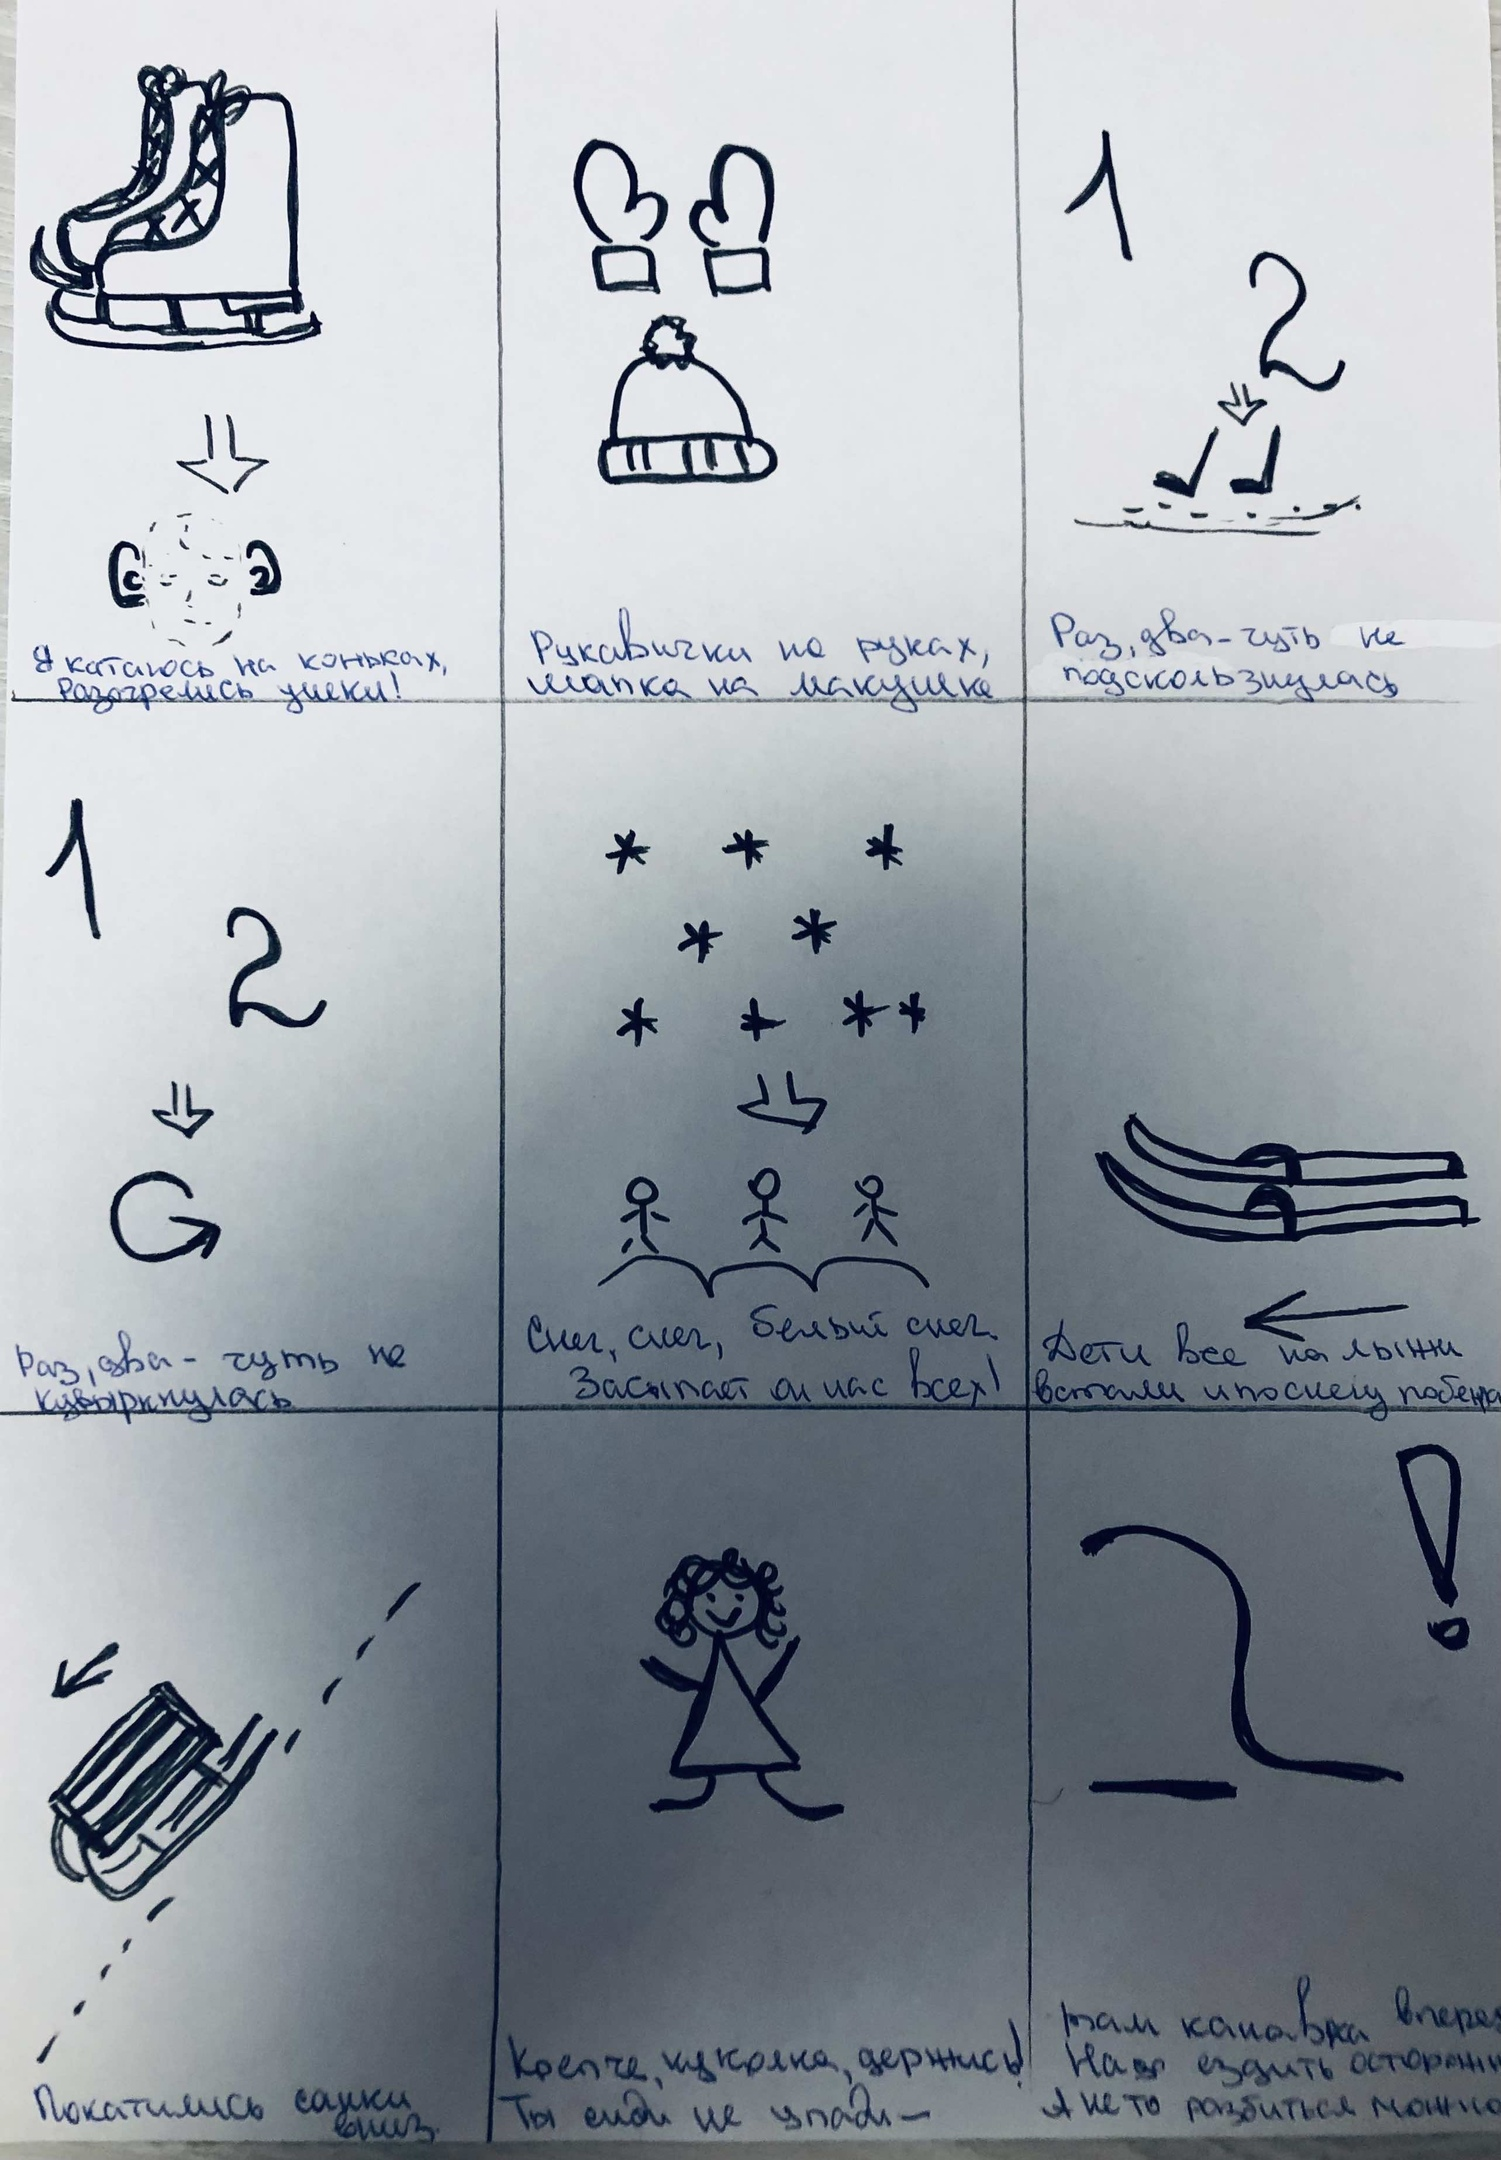 Я катаюсь на коньках,
Разогрелись ушки!
Рукавички на руках,
шапка на макушке
1
2
Раз, два - чуть не
подскользнулась
1
2
Раз, два - чуть не
кувыркнулась
Снег, снег, белый снег.
Засыпает он нас всех!
Дети все на лыжи
встали и по снегу побежа
Покатились санки
вниз
Крепче, куколка, держись!
Ты сиди не упади -
!
там канавка вперед
Надо ездить осторожн
А не то разбиться можно